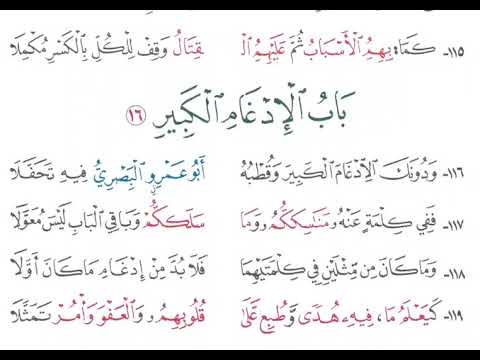 ١١٥- كَمَا بِهِمُ ٱلْأَسْبَابُ ثُمَّ عَلَيْهِمُ ٱلْـ قِتَالُ وَقِفْ لِلْكُلِّ بِالْكَسْرِ مُكْمِلَا
بَابُ ٱلْإِدْغَامِ ٱلْكَبِيرِ ١٦
١١٦- وَدُونَكَ ٱلِادْغَامَ ٱلْكَبِيرَ وَقُطْبُهُ أَبُو عَمْرٍو ٱلْبَصْرِيُّ فِيهِ تَحَفَّلَا
١١٧- فَفِي كِلْمَةٍ عَنْهُ مَنَاسِكَكُّمْ وَمَا سَلَككُّمْ وَبَاقِي ٱلْبَابِ لَيْسَ مُعَوَّلَا
١١٨- وَمَا كَانَ مِنْ مِثْلَيْنِ فِي كِلْمَتَيْهِمَا فَلَا بُدَّ مِنْ إِدْغَامِ مَا كَانَ أَوَّلَا
١١٩- كَيَعْلَم مَّا، فِيهِ هُدًى وَّطُبِع عَّلَىٰ قُلُوبِهِمُ وَٱلْعَفْو وَّأْمُرْ تَمَثَّلَا